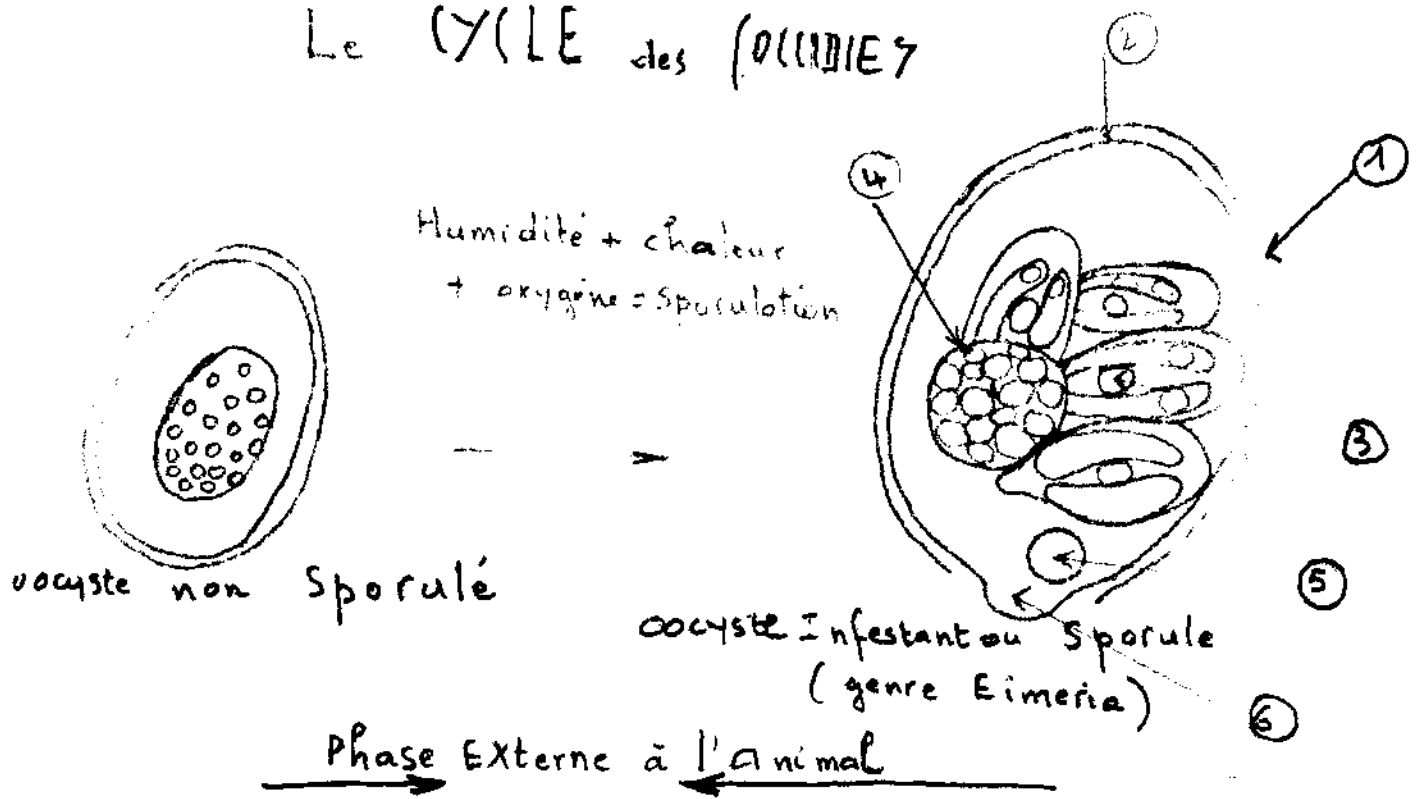 Le CYCLE des COCCIDIES
2
1
4
Humidité + chaleur
+ oxygène = Sporulation
3
oocyste non Sporulé
5
oocyste Infestant ou Sporule
(genre Eimeria)
6
Phase Externe à l'animal